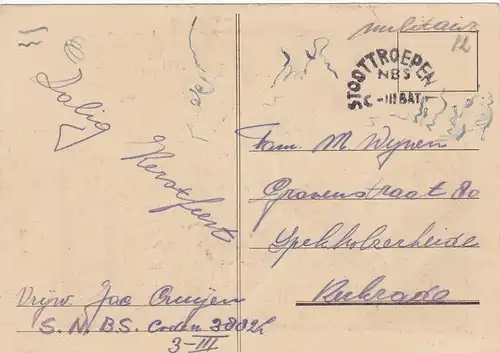 militair
12
STOOTTROEPEN
NBS
C-III BAT
Zalig
Kerstfeest
Fam. M Wijnen
Gravenstraat 80
Spekholzerheide
Vrijw. Jac Cruijen
S. N. B. S. Coden 3832h
3-III